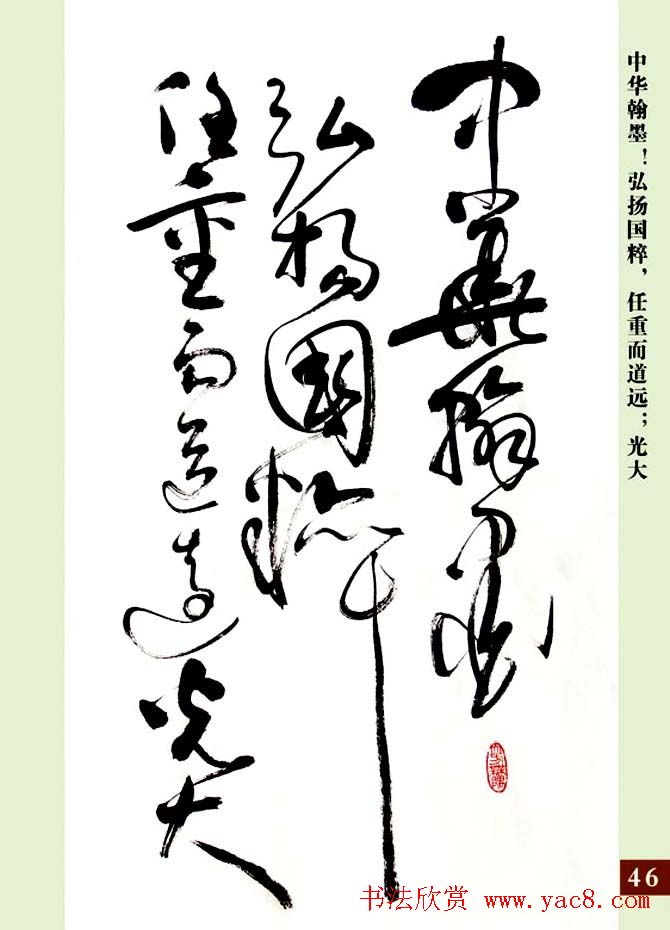 中華翰墨
弘揚國粹
任重而道遠光大
中华翰墨！弘扬国粹，任重而道远；光大
46
书法欣赏 www.yac8.com